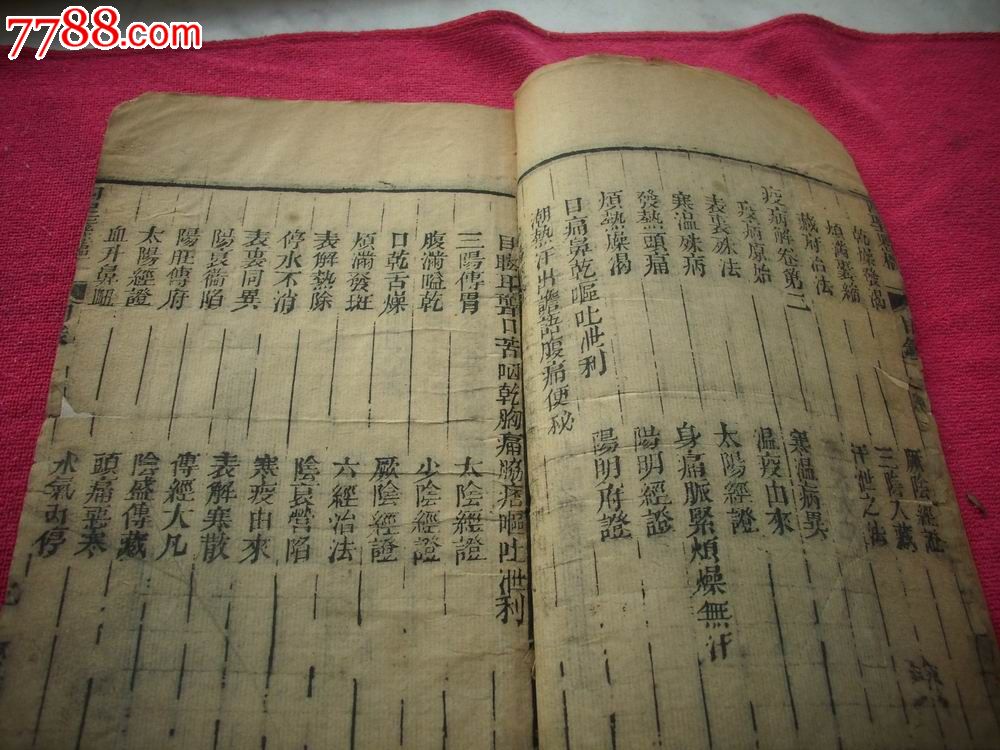 7788.com
乾燥發渴
厥陰經證
煩滿囊縮
三陰入藏
藏府治法
汗泄之法
疫病解卷第二
疫病原始
寒温病異
表裏殊法
温疫由來
寒温殊病
太陽經證
發熱頭痛
身痛脈緊煩燥無汗
煩熱燥渴
陽明經證
目痛鼻乾嘔吐泄利
陽明府證
潮熱汗出譫語腹痛便秘
目眩耳聾口苦咽乾胸痛脇痞嘔吐泄利
三陽傳胃
太陰經證
腹滿嗌乾
少陰經證
口乾舌燥
厥陰經證
煩滿發斑
六經治法
表解熱除
陰衰營陷
停水不消
寒疫由來
表裏同異
表解寒散
陽衰衞陷
傳經大凡
陽旺傳府
陰盛傳藏
太陽經證
頭痛惡寒
血升鼻衄
水氣內停